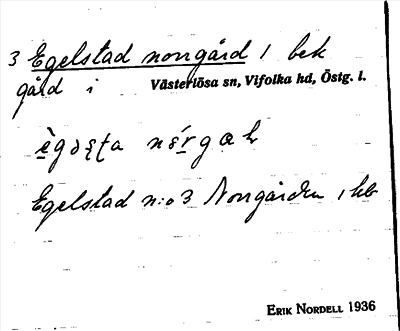 3 Egelstad norrgård / bek
gård i Västerlösa sn, Vifolka hd, Östg. l.
Egelstad n:o 3 Norrgården, hb
ERIK NORDELL 1936